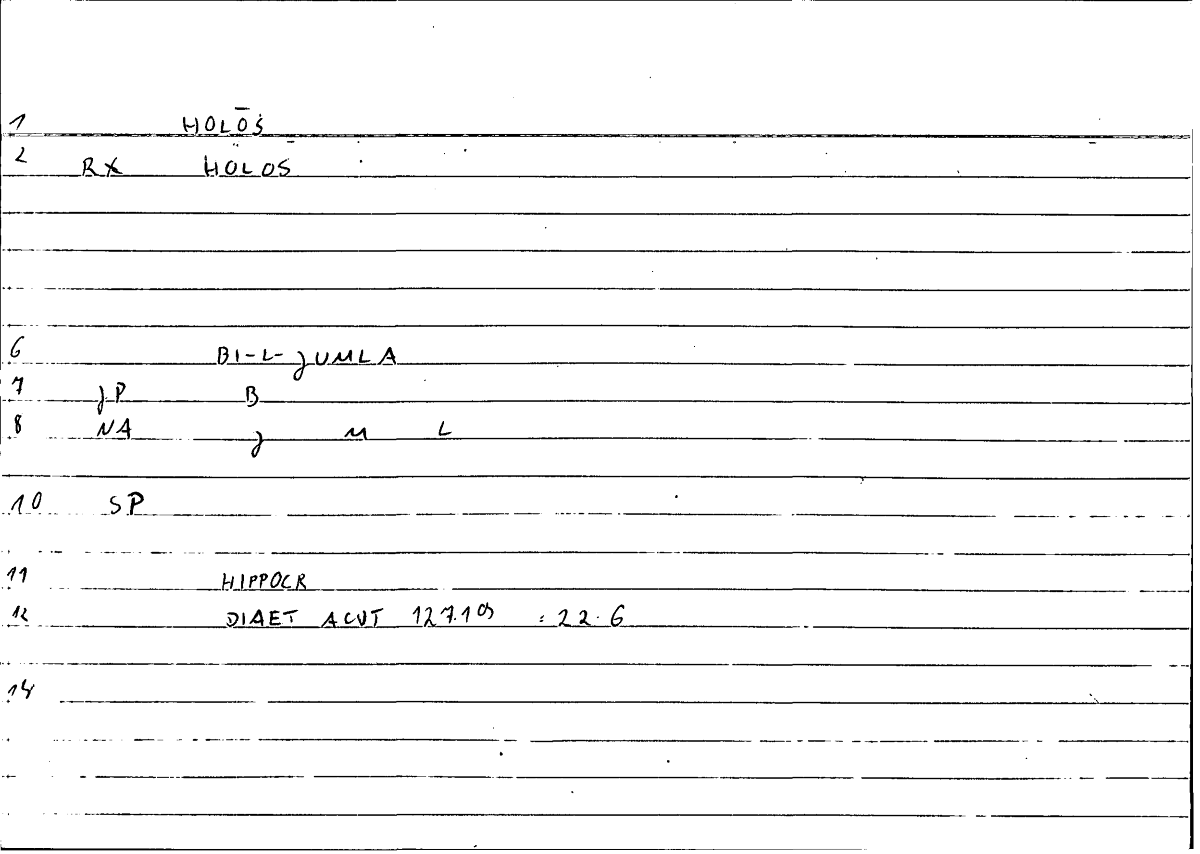 1 HOLŌS
2 RX HOLOS
6 BI-L-JUMLA
7 JP B
8 NA J M L
10 SP
11 HIPPOCR
12 DIAET ACUT 127.1 : 22.6
14